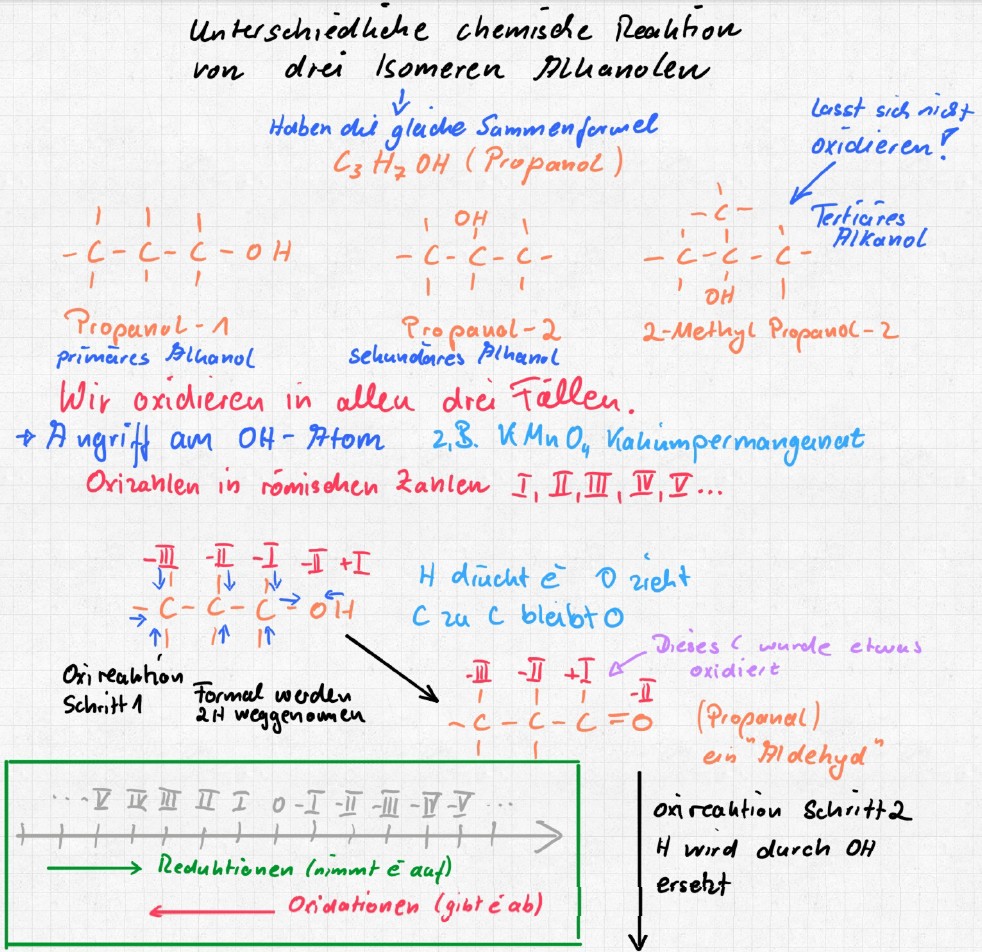 Unterschiedliche chemische Reaktion
von drei Isomeren Alkanolen
Haben die gleiche Summenformel
C₃H₇OH (Propanol)
Lasst sich nicht
oxidieren!
Tertiäres
Alkanol
- C -
- C - C - C - OH
OH
- C - C - C -
- C - C - C -
OH
Propanol-1
Propanol-2
2-Methyl Propanol-2
primäres Alkanol
sekundäres Alkanol
Wir oxidieren in allen drei Fällen.
→ Angriff am OH-Atom z.B. KMnO₄ Kaliumpermanganat
Oxizahlen in römischen Zahlen I, II, III, IV, V...
-III -II -I -II +I
- C - C - C - OH
H drückt e⁻ O zieht
C zu C bleibt O
Dieses C wurde etwas
oxidiert
Oxireaktion
Schritt 1
Formal werden
2H weggenomen
-III -II +I -II
- C - C - C = O
(Propanal)
ein "Aldehyd"
... V IV III II I 0 -I -II -III -IV -V ...
Reduktionen (nimmt e⁻ auf)
Oxidationen (gibt e⁻ ab)
oxireaktion Schritt 2
H wird durch OH
ersetzt